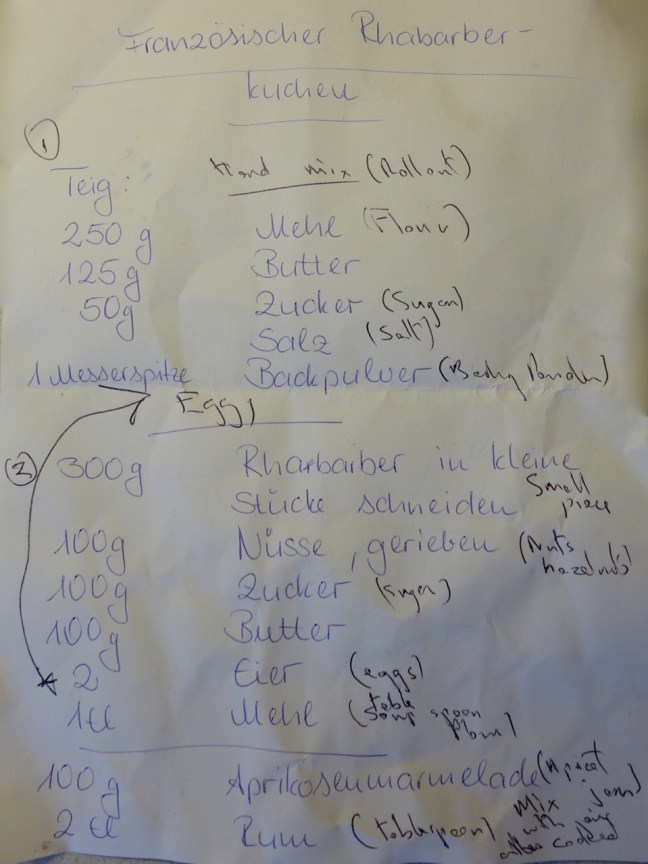 Französischer Rhabarber-
kuchen
1
Teig: Hand mix (Rollout)
250 g Mehl (Flour)
125g Butter
50g Zucker (Sugar)
Salz (Salt)
1 Messerspitze Backpulver (Baking Powder)
Egg)
2 300g Rharbarber in kleine
Stücke schneiden Small
piece
100g Nüsse, gerieben (Nuts
hazelnuts)
100g Zucker (sugar)
100g Butter
2 Eier (eggs)
1 El Mehl (table
spoon
flour)
100 g Aprikosenmarmelade (Apricot
jam)
2 El Rum (tablespoon) mix
with jam
after cooked